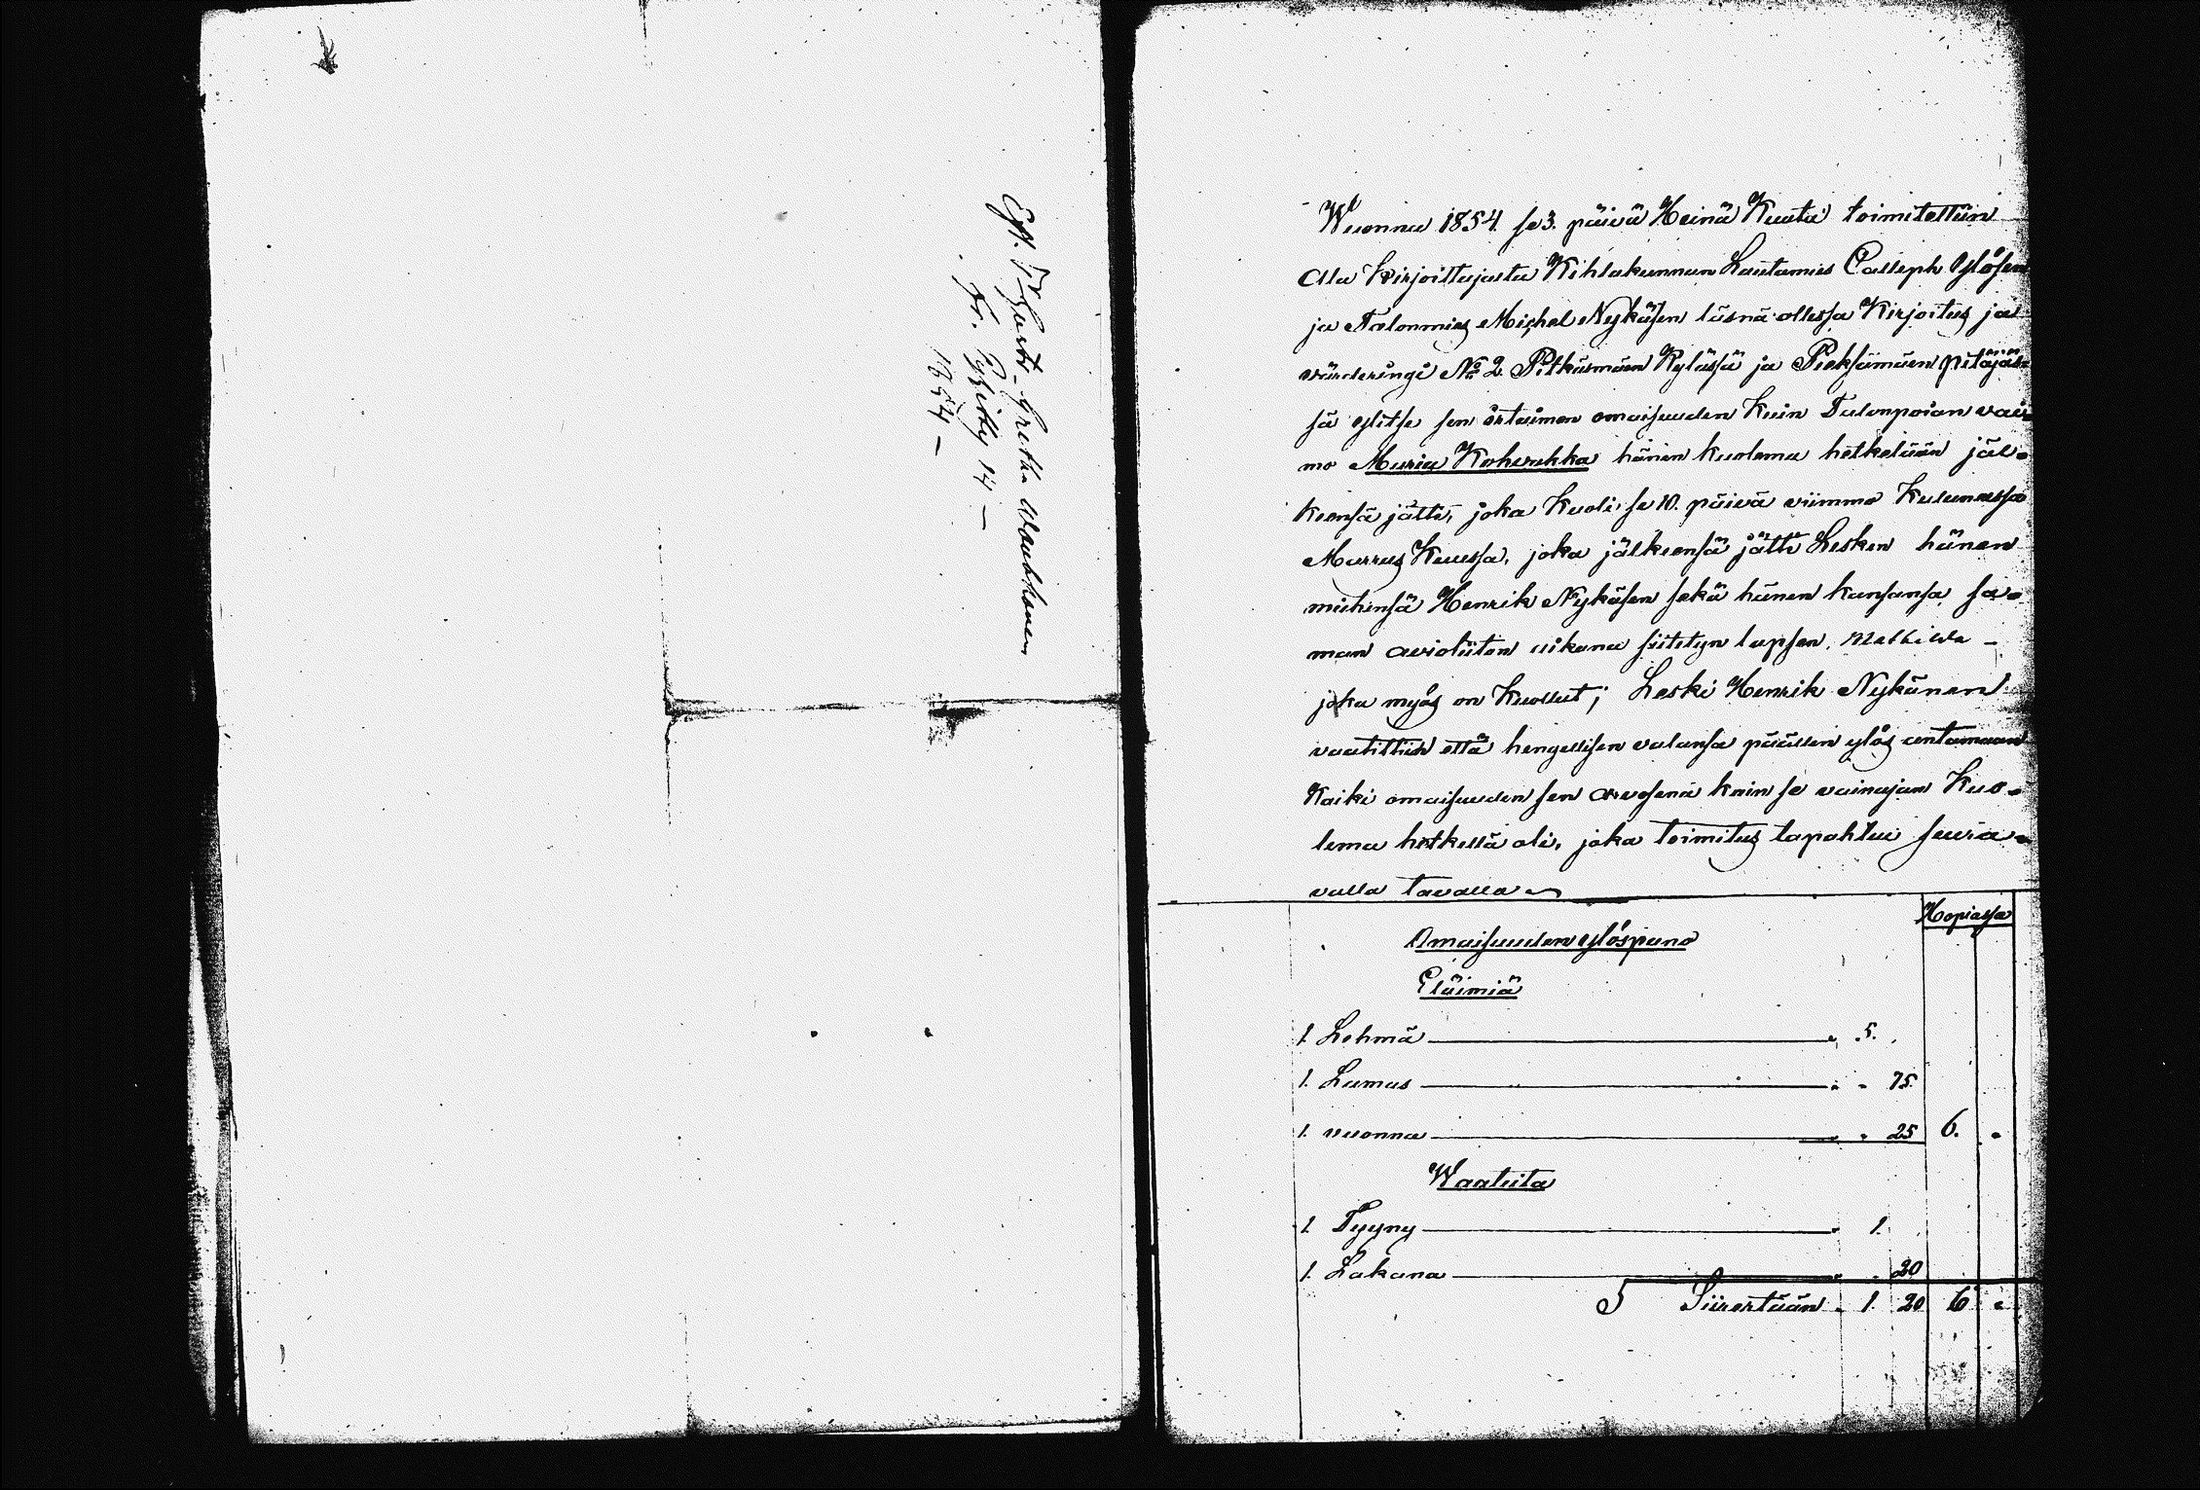 Eft. Greta
fr.
1854 –
Wuonna 1854 se 3. päivä Heinä Kuuta toimitettiin
Ala Kirjoittajalta Kihlakunnan Lautamies Calleph Ylösen
ja Talonmies Michel Nykäsen läsnä ollessa Kirjoitus ja
värderingi No 2. Pitkämäen Kylässä ja Pieksämäen pitäjäs-
sä ylitse sen irtaimen omaisuuden Kuin Talonpoian vai-
mo Maria Kaherukka hänen kuolema hetkeltään jäl-
keensä jätti, joka Kuoli se 10. päivä viimme Kulunnessa
Marras Kuussa, joka jälkeensä jätti Lesken hänen
miehensä Henrik Nykäsen sekä hänen kansansa sa-
man avioliiton aikana siitetyn lapsen, Mathilda –
joka myös on Kuollut; Leski Henrik Nykänen
vaatittiin että hengellisen valansa päällen ylös antamaan
Kaiki omaisuuden sen arvosena kuin se vainajan Kuo-
lema hetkellä oli, joka toimitus tapahtui seura-
valla tavalla
Hopiassa
Omaisuuden ylöspano
Eläimiä
1. Lehmä " 5. "
1. Lamas " " 75.
1. vuonna " " 25 6. "
Waateita
1. Tyyny " 1.
1. Lakana " " 20
S Siirretään " 1. 20 6 "